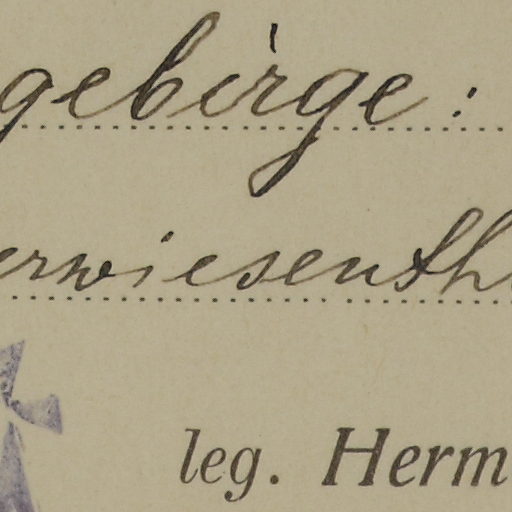 gebirge:
erwiesenth
leg. Herm